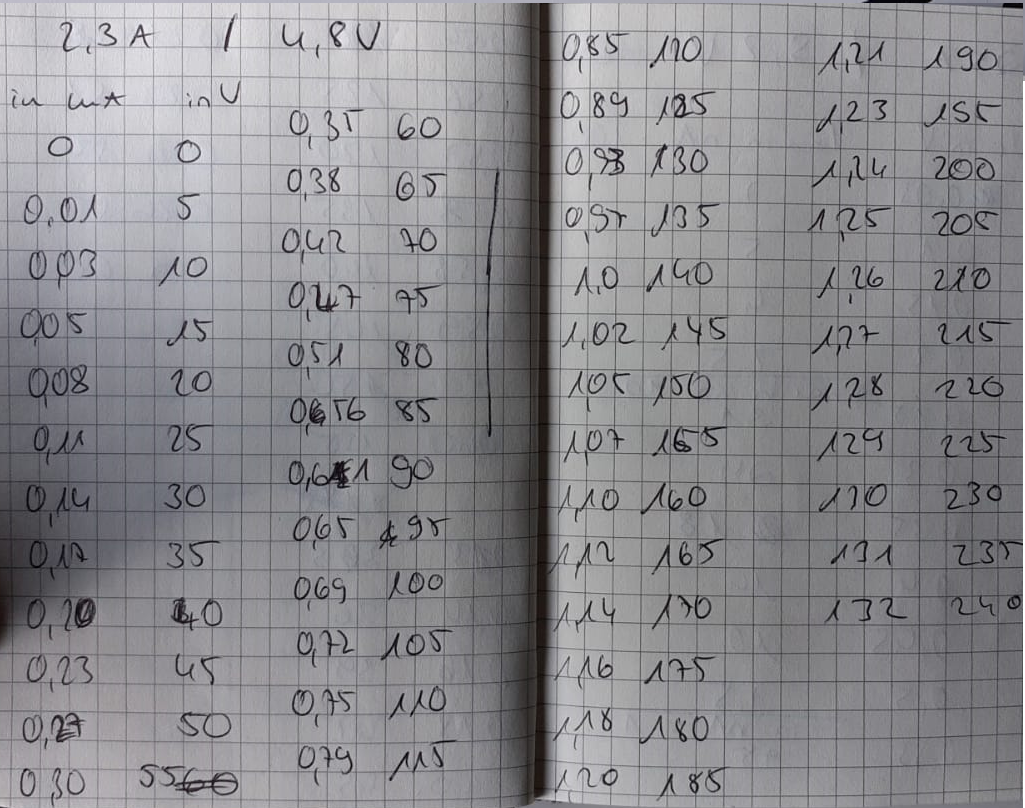 2,3A / 4,8V
in mA in V
0 0
0,01 5
0,03 10
0,05 15
0,08 20
0,11 25
0,14 30
0,17 35
0,20 40
0,23 45
0,27 50
0,30 55
0,35 60
0,38 65
0,42 70
0,47 75
0,51 80
0,56 85
0,61 90
0,65 95
0,69 100
0,72 105
0,75 110
0,79 115
0,85 120
0,89 125
0,93 130
0,97 135
1,0 140
1,02 145
1,05 150
1,07 155
1,10 160
1,12 165
1,14 170
1,16 175
1,18 180
1,20 185
1,21 190
1,23 195
1,24 200
1,25 205
1,26 210
1,27 215
1,28 220
1,29 225
1,30 230
1,31 235
1,32 240